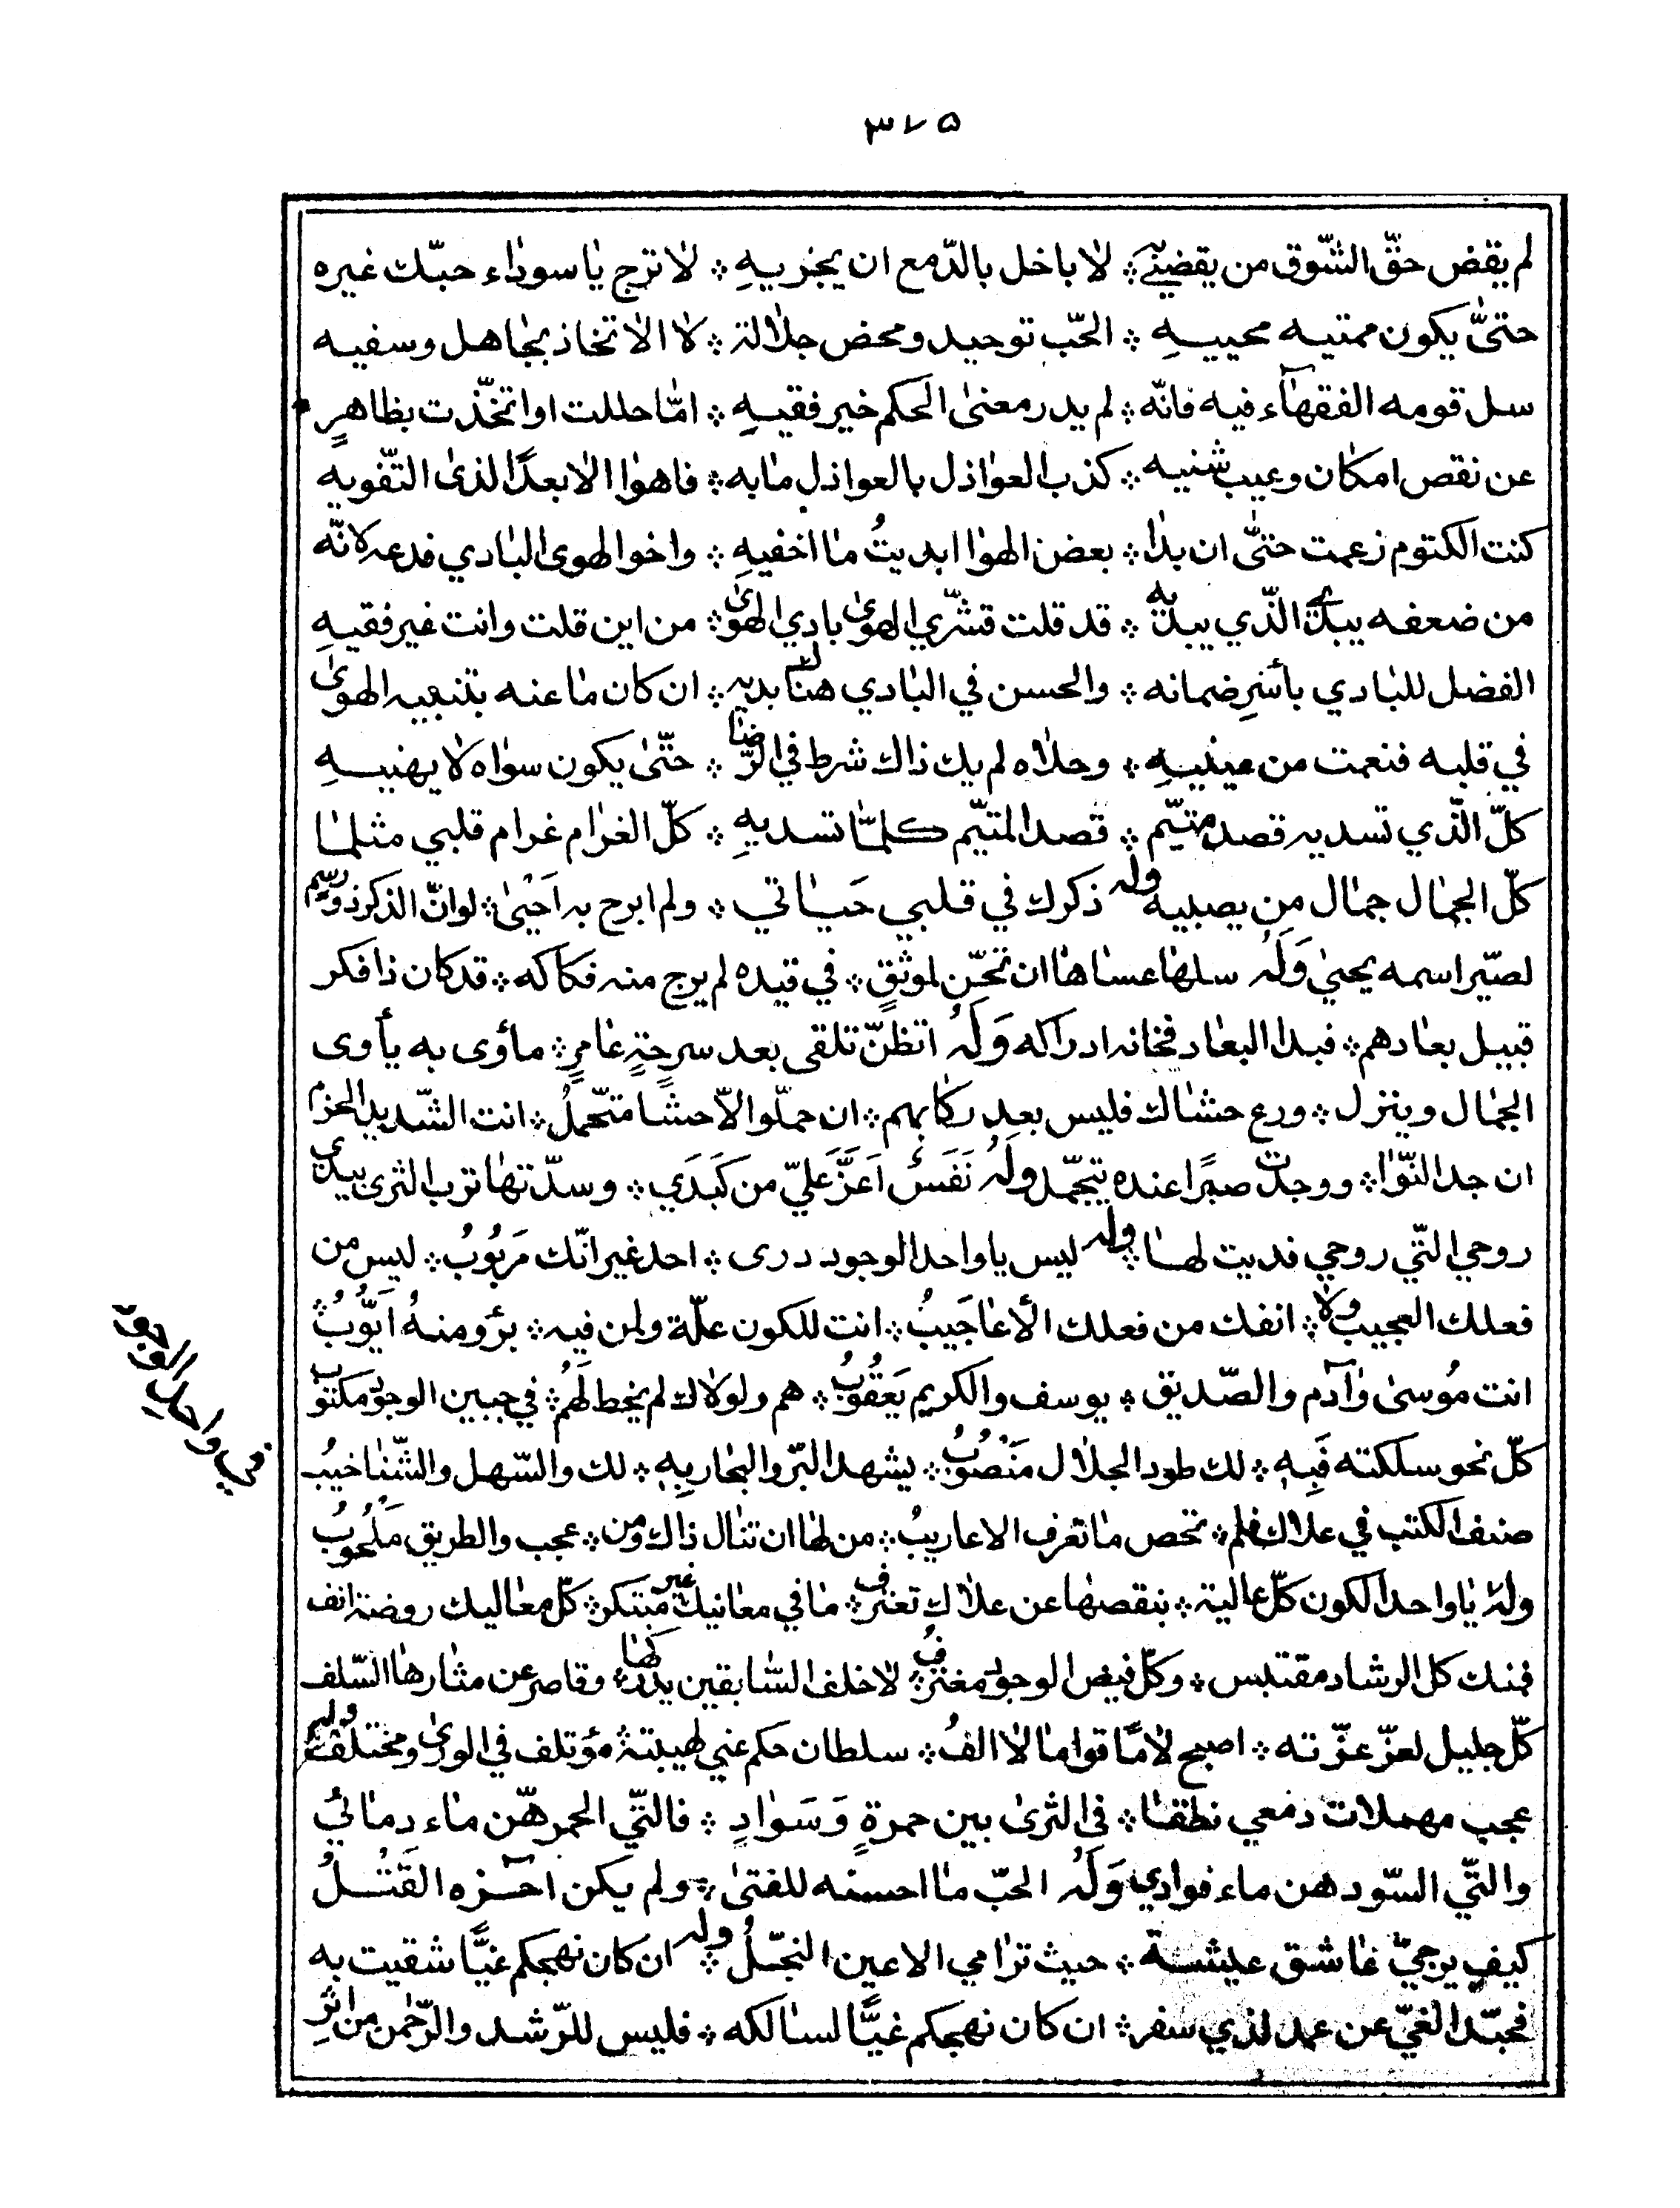 ٣٧٥
لم يقض حقّ الشّوق من يقضيه ؞ لا باخل بالدّمع ان يجزيهِ ؞ لا ترج يا سوداء حبّك غيره
حتىّ يكون مميته محييهِ ؞ الحّب توحيد ومحض جلالة ؞ لا الاتخاذ بجاهل وسفيه
سل قومه الفقهآء فيه فانّه ؞ لم يدر معنىٰ الحكم خير فقيهِ ؞ امّا حللت او اتخّذت بظاهرٍ
عن نقص امكان وعيب شنيه ؞ كذب العواذل بالعواذل مابه ؞ فاهوا الابعدَّا لذى التّفويه
كنت الكتوم زعمت حتىّ ان بدا ؞ بعض الهوا ابديتُ ما اخفيهِ ؞ واخو الهوى البادي فدعه لانّه
من ضعفه يبدى الّذي يبديه ؞ قد قلت قشّري الهوىٰ بادي الهوىٰ ؞ من اين قلت وانت غير فقيهِ
الفضل للبادي بأسرِ ضمانه ؞ والحسن في البادي هناك بديه ؞ ان كان ما عنه بتنبيه الهوىٰ
في قلبه فنعمت من مينيهِ ؞ وحلاه لم يك ذاك شرط في الرّضا ؞ حتّىٰ يكون سواه لا يهنيهِ
كلّ الّذي تسديه قصد متيّم ؞ قصد المتيّم كلمّا تسديهِ ؞ كلّ الغرام غرام قلبي مثلما
كلّ الجمال جمال من يصبيه وله ذكرك في قلبي حَياتي ؞ ولم ابرح به اَحْيىٰ ؞ لو انّ الذكر ذو رسم
لصيّر اسمه يحيىٰ وَلَهُ سلها عساها ان تحّن لموثقٍ ؞ في قيده لم يرج منه فكاكه ؞ قد كان ذا فكر
قبيل بعادهم ؞ فبدا البعاد فخانه ادراكه وَلَهُ اتظنّ تلقى بعد سرحةِ عامرٍ ؞ مأوى به يأوى
الجمال وينزل ؞ ورع حشاك فليس بعد ركابهم ؞ ان حملّوا الاّ حشًا متحّملُ ؞ انت الشّديد الحزم
ان جد النّوا ؞ ووجدت صبرًا عنده يتجمّد ولَهُ نَفَسٌ اَعَزَّ عَليّ من كَبَدَي ؞ وسدّتها ترب الثرى بيدى
روحي التّي روحي فديت لها ؞ وله ليس يا واحد الوجود درى ؞ احد غير انّك مَربُوبُ ؞ ليس من
فعلك العجيب ولا ؞ انفك من فعلك الأعاجَيبُ ؞ انت للكون علّة ولمن فيه ؞ برؤ ومنهُ ايَّوُبُ ؞
انت مُوسىٰ وآدم والصّديق ؞ يوسف والكريم يَعقُوبُ ؞ هم ولولاك لم يخط لَهُم ؞ في جبين الوجود مكتوب
كلّ نحو سلكته فَبِهِ ؞ لك طود الجلال مَنْصُوبُ ؞ يشهد البّر والبحار بِهِ ؞ لك والسّهل والشّناخيبُ
صنف الكتب في علاك فلم ؞ تحص ما تعرف الاعاريبُ ؞ من لها ان تنال ذاك ومن ؞ عجب والطريق مَلْحُوبُ
ولهُ يا واحد الكون كلّ عالية ؞ بنقصها عن علاك تعترف ؞ ما في معانيك غير مبتكر ؞ كلّ معاليك روضة انف
فمنك كل الرشاد مقتبس ؞ وكلّ فيض الوجود مغترفُ ؞ لا خلف السّابقين يدركها ؞ وقاصر عن مثارها السّلف
كلّ جليل لعزّ عزّته ؞ اصبح لامًا قواما لا الفُ ؞ سلطان حكم غني لهيبته ؞ مؤتلف في الورىٰ ومختلف ولهُ
عجب مهملات دمعي نطقا ؞ في الثرىٰ بين حمرةٍ وَسَوادٍ ؞ فالتّي الحمر هّن ماء دمائي
والتّي السّود هن ماء فوادي وَلَهُ الحبّ ما احسنه للفتىٰ ؞ ولم يكن آخزه القَتْلُ
كيف يرجيّ عاشق عيشة ؞ حيث ترامي الاعين النجّلُ ؞ وله ان كان نهجكم غيًّا شقيت به
فحبّذ الغيّ عن عمد لذي سفر ؞ ان كان نهجكم غيًّا لسالكه ؞ فليس للرّشد والرّحمن من اثرِ
في واحد الوجود